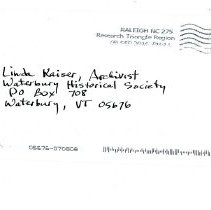 RALEIGH NC 275
Research Triangle Region
Linda Kaiser, Archivist
Waterbury Historical Society
PO Box 708
Waterbury, VT 05676
05676-070808